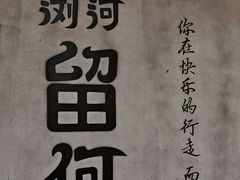 浏河
留何
你在快乐的行走 而